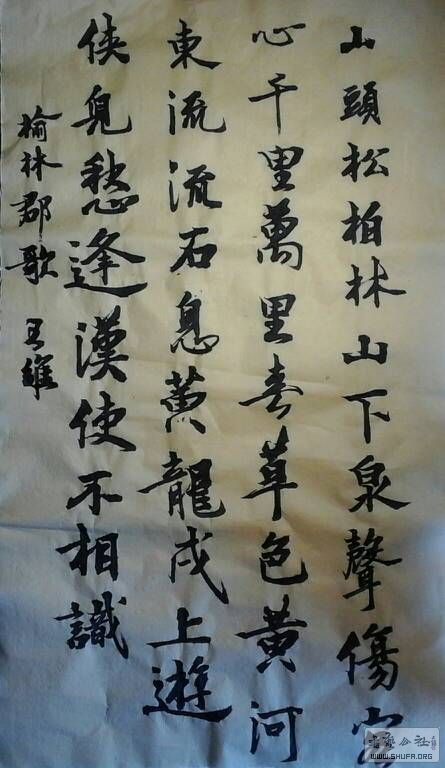 山頭松柏林山下泉聲傷客
心千里萬里春草色黃河
東流流石息黃龍戍上遊
俠兒愁逢漢使不相識
榆林郡歌 王維
WWW.SHUFA.ORG